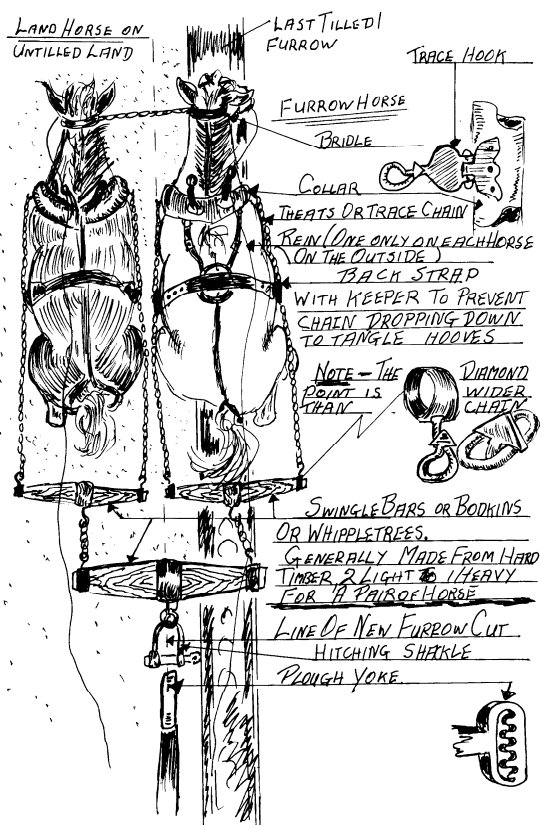 LAND HORSE ON
UNTILLED LAND
LAST TILLED
FURROW
TRACE HOOK
FURROW HORSE
BRIDLE
COLLAR
THEATS OR TRACE CHAIN
REIN (ONE ONLY ON EACH HORSE
ON THE OUTSIDE)
BACK STRAP
WITH KEEPER TO PREVENT
CHAIN DROPPING DOWN
TO TANGLE HOOVES
NOTE - THE DIAMOND
POINT IS WIDER
THAN CHAIN
SWINGLE BARS OR BODKINS
OR WHIPPLETREES.
GENERALLY MADE FROM HARD
TIMBER 2 LIGHT 1 HEAVY
FOR A PAIR OF HORSE
LINE OF NEW FURROW CUT
HITCHING SHAKLE
PLOUGH YOKE